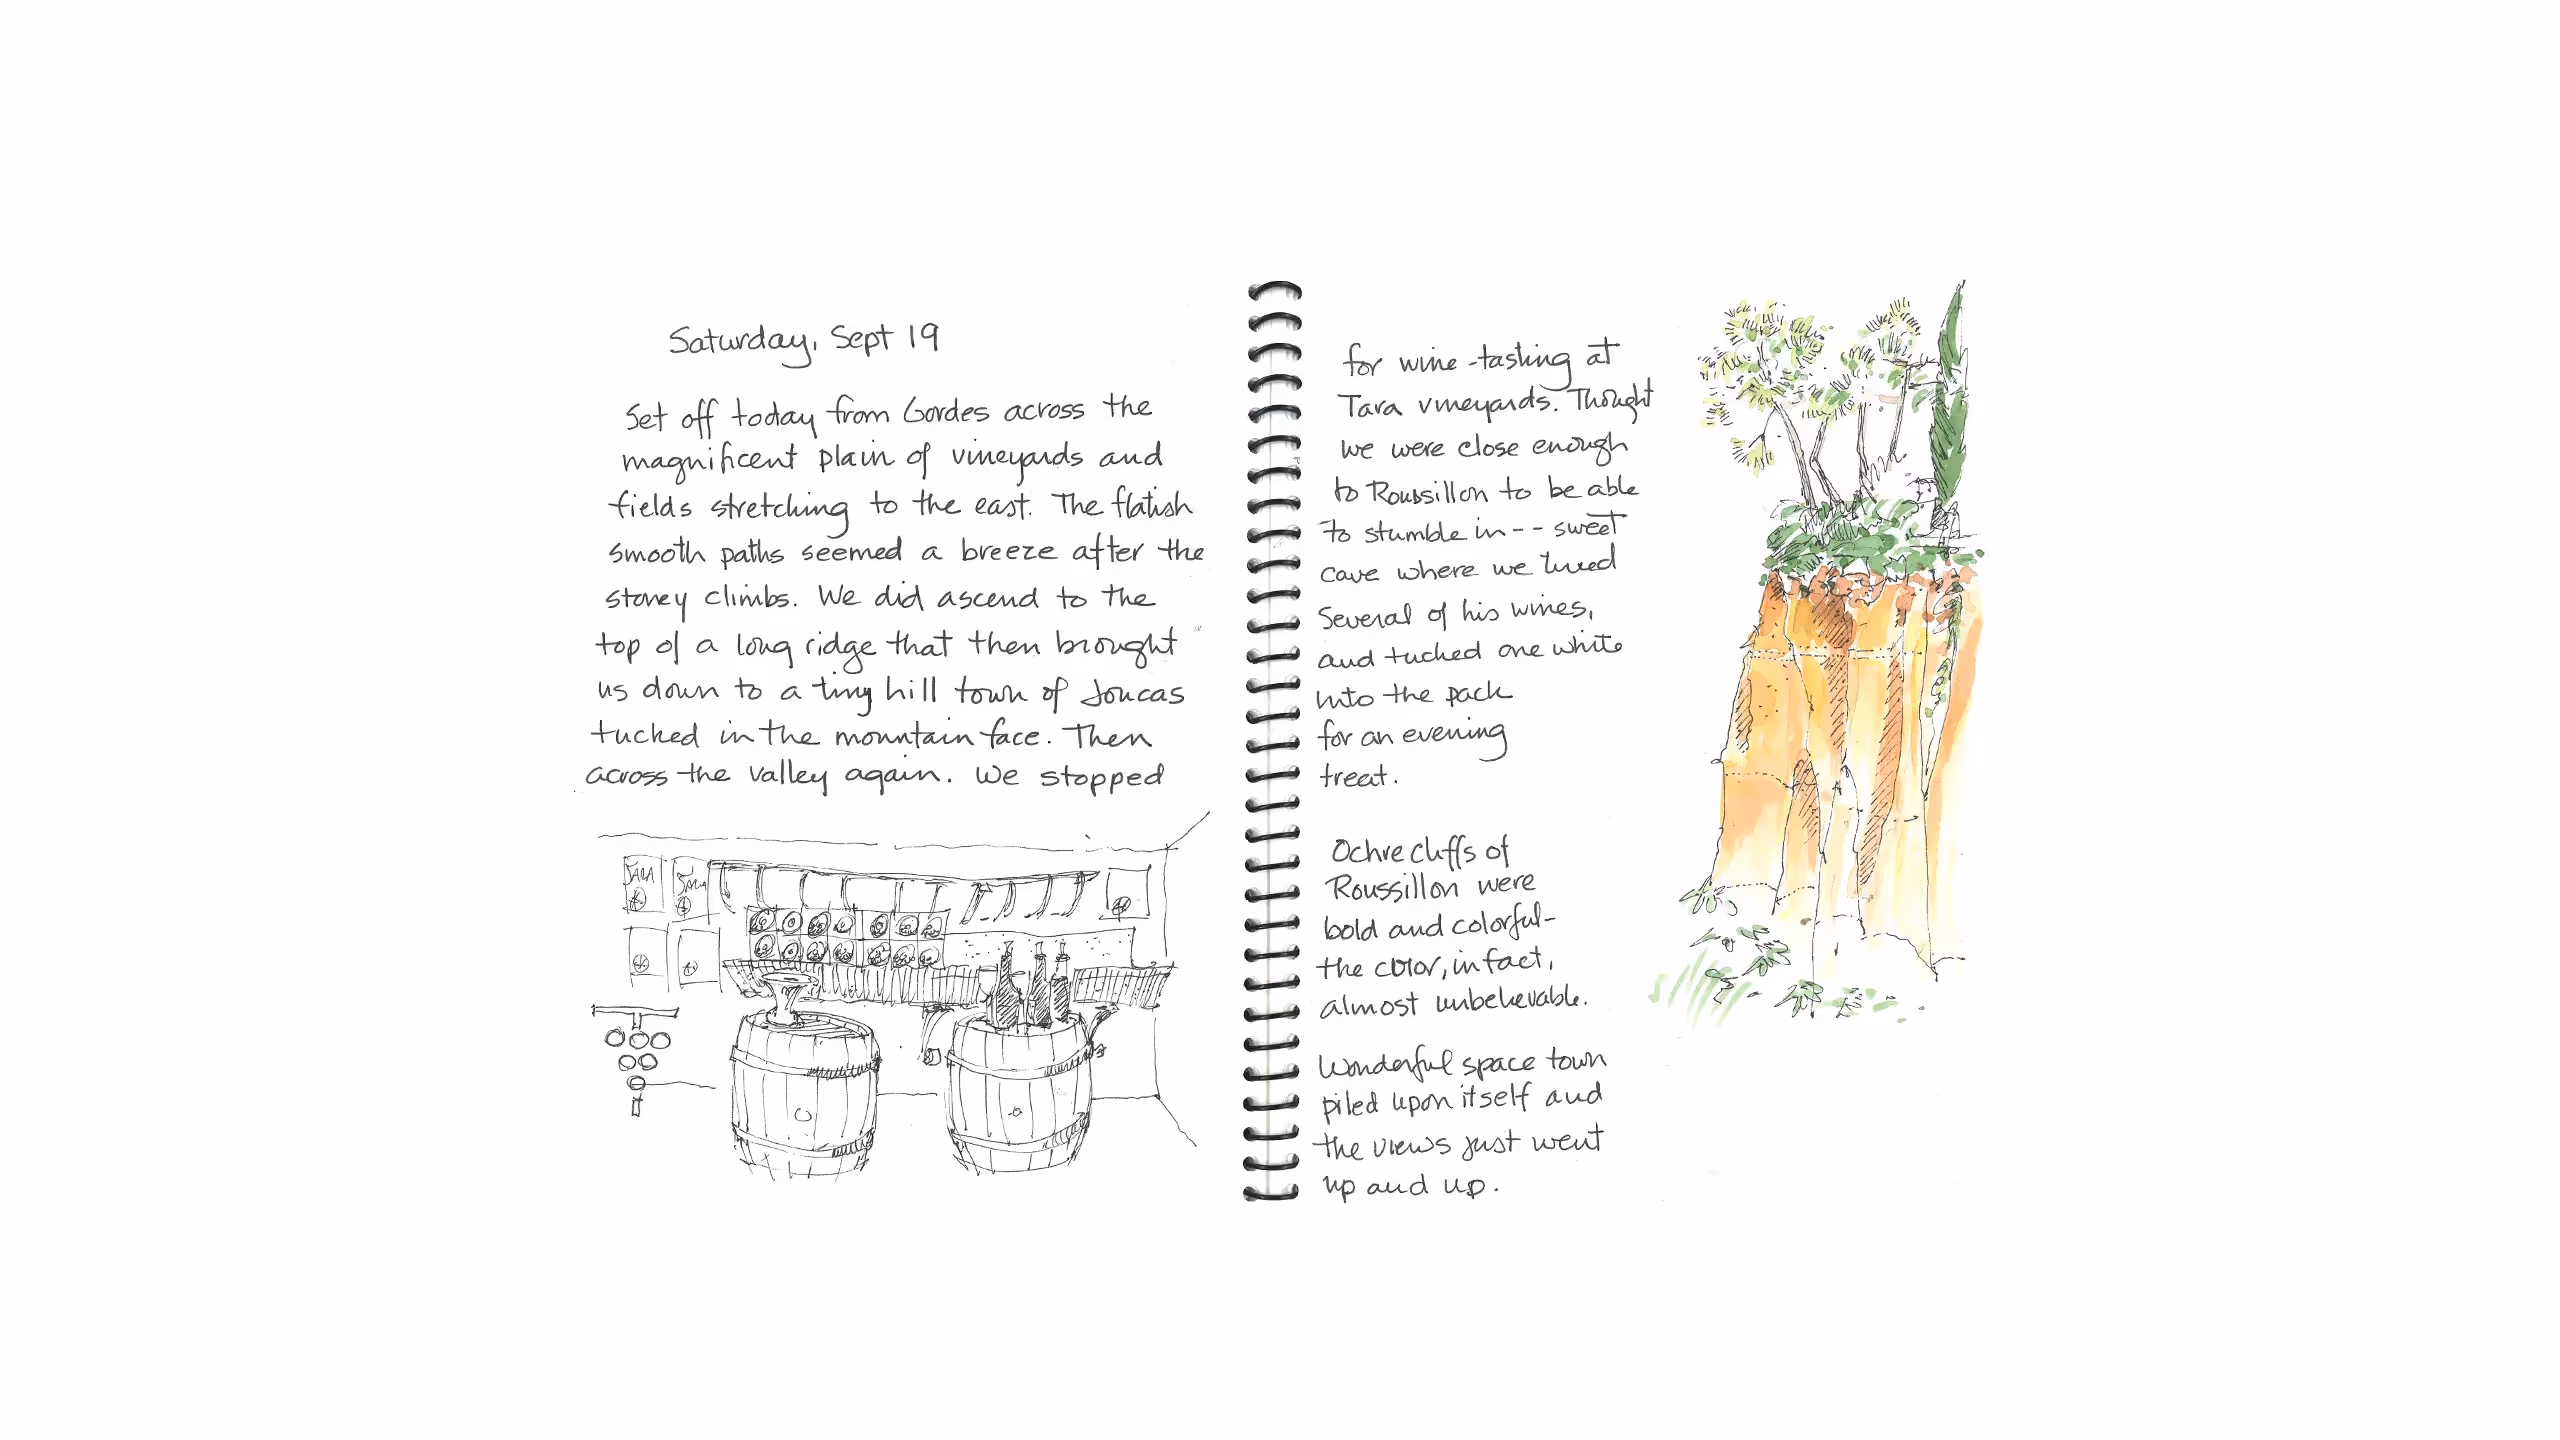 Saturday, Sept 19
Set off today from Gordes across the
magnificent plain of vineyards and
fields stretching to the east. The flatish
smooth paths seemed a breeze after the
stoney climbs. We did ascend to the
top of a long ridge that then brought
us down to a tiny hill town of Joucas
tucked in the mountain face. Then
across the valley again. We stopped
TARA
for wine-tasting at
Tara vineyards. Thought
we were close enough
to Roussillon to be able
to stumble in-- sweet
cave where we tried
several of his wines,
and tucked one white
into the pack
for an evening
treat.
Ochre cliffs of
Roussillon were
bold and colorful-
the color, in fact,
almost unbelievable.
Wonderful space town
piled upon itself and
the views just went
up and up.